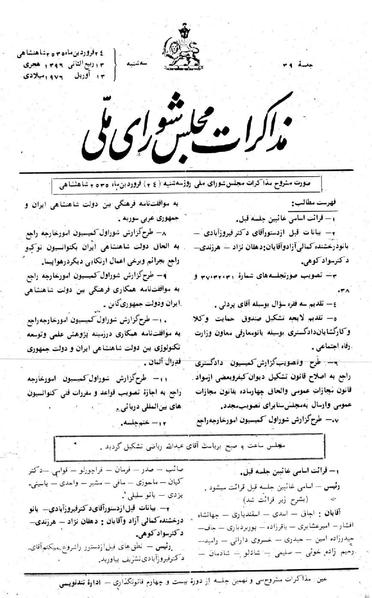 جلسهٔ ۳۹
سه‌شنبه
۲۴ فروردین‌ماه ۲۵۳۵ شاهنشاهی
۱۳ ربیع‌الثانی ۱۳۹۶ هجری
۱۳ آوریل ۱۹۷۶ میلادی
مذاکرات مجلس شورای ملی
صورت مشروح مذاکرات مجلس شورای ملی روز سه‌شنبه (۲۴) فروردین‌ماه ۲۵۳۵ شاهنشاهی
فهرست مطالب:
۱- قرائت اسامی غائبین جلسه قبل.
۲- بیانات قبل از دستور آقای دکتر فیروزآبادی -
بانو درخشنده کمالی آزاد و آقایان: دهقان نژاد - هرزندی -
دکتر سوادکوهی.
۳- تصویب صورتجلسه‌های شمارهٔ ۳۱ و ۳۲ و ۳۷ و
۳۸.
۴- تقدیم سه فقره سؤال بوسیله آقای پردلی.
۵- تقدیم لایحه تشکیل صندوق حمایت وکلا
و کارگشایان دادگستری بوسیله بانو معارفی معاون وزارت
رفاه اجتماعی.
۶- طرح و تصویب گزارش کمیسیون دادگستری
راجع به اصلاح قانون تشکیل دیوان کیفر و بعضی از مواد
قانون مجازات عمومی و الحاق چهار ماده به قانون مجازات
عمومی و ارسال به مجلس سنا برای تصویب مجدد.
۷- طرح گزارش شور اول کمیسیون امور خارجه راجع
به موافقت‌نامه فرهنگی بین دولت شاهنشاهی ایران و
جمهوری عربی سوریه.
۸- طرح گزارش شور اول کمیسیون امور خارجه راجع
به الحاق دولت شاهنشاهی ایران بکنوانسیون توکیو
راجع بجرائم و برخی اعمال ارتکابی دیگر در هواپیما.
۹- طرح گزارش شور اول کمیسیون امور خارجه راجع
به موافقت‌نامه همکاری فرهنگی بین دولت شاهنشاهی
ایران و دولت جمهوری گابن.
۱۰- طرح گزارش شور اول کمیسیون امور خارجه راجع
به موافقت‌نامه همکاری در زمینه پژوهش علمی و توسعه
تکنولوژی بین دولت شاهنشاهی ایران و دولت جمهوری
فدرال آلمان.
۱۱- طرح گزارش شور اول کمیسیون امور خارجه
راجع به اجازهٔ تصویب قواعد و مقررات فنی کنوانسیون
های بین‌المللی دریائی.
۱۲- ختم جلسه.
مجلس ساعت و صبح بریاست آقای عبدالله ریاضی تشکیل گردید.
۱- قرائت اسامی غائبین جلسه قبل.
رئیس - اسامی غائبین جلسه قبل قرائت میشود.
(بشرح زیر قرائت شد)
آقایان: اسدی - اسفندیاری - جهانشاه
افشار - امیر عشایری - باقرزاده - پوربردباری -
امامی - حیدری - خسروی دارائی - رامبد -
رحیم زاده خوئی - صلیمی - شاملو - شادمان -
صائب - صدر - فرمان - قراچورلو - قوامی - دکتر
کیان - ماجوری - مافی - مشیر - واحدی - یاسینی -
یزدی - بانو سلیلی.
۲- بیانات قبل از دستور آقای دکتر فیروزآبادی - بانو
درخشنده کمالی آزاد و آقایان: دهقان نژاد - هرزندی -
دکتر سوادکوهی.
رئیس - نطق‌های قبل از دستور را شروع میکنیم آقای
دکتر فیروزآبادی تشریف بیاورید.
عین مذاکرات مشروح سی و نهمین جلسه از دوره بیست و چهارم قانونگذاری - ادارهٔ تندنویسی